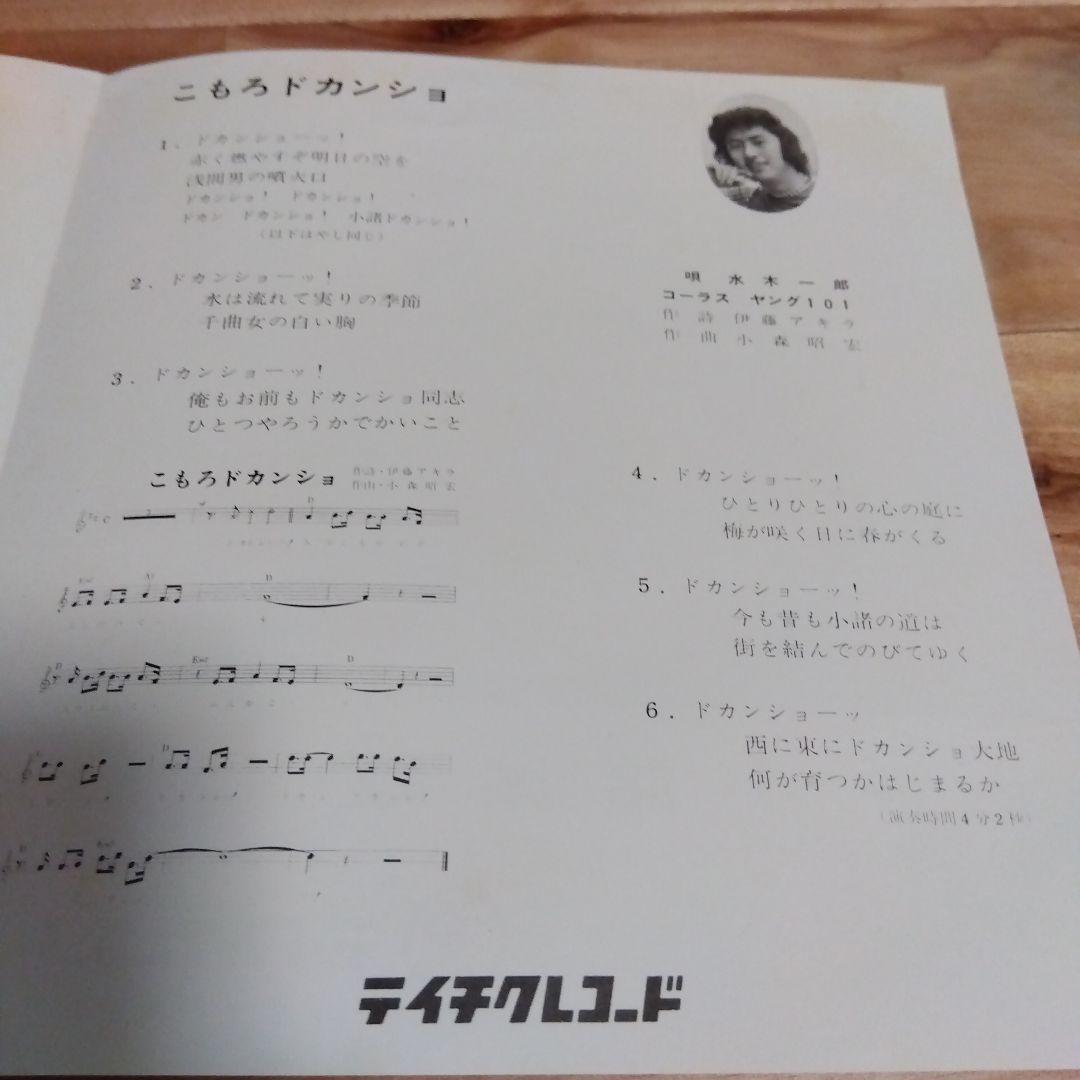 こもろドカンショ
1. ドカンショーッ!
赤く燃やすぞ明日の空を
浅間男の噴火口
ドカンショ! ドカンショ!
ドカン ドカンショ! 小諸ドカンショ!
(以下はやし同じ)
2. ドカンショーッ!
水は流れて実りの季節
千曲女の白い胸
3. ドカンショーッ!
俺もお前もドカンショ同志
ひとつやろうかでかいこと
唄 水木一郎
コーラス ヤング101
作詩 伊藤アキラ
作曲 小森昭宏
こもろドカンショ
作詩・伊藤アキラ
作曲・小森昭宏
4. ドカンショーッ!
ひとりひとりの心の庭に
梅が咲く日に春がくる
5. ドカンショーッ!
今も昔も小諸の道は
街を結んでのびてゆく
6. ドカンショーッ
西に東にドカンショ大地
何が育つかはじまるか
(演奏時間4分2秒)
テイチクレコード